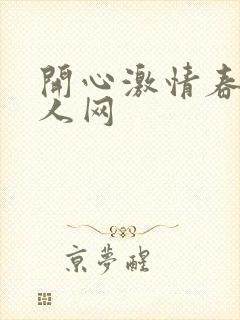 開心激情春
人网
京夢醒